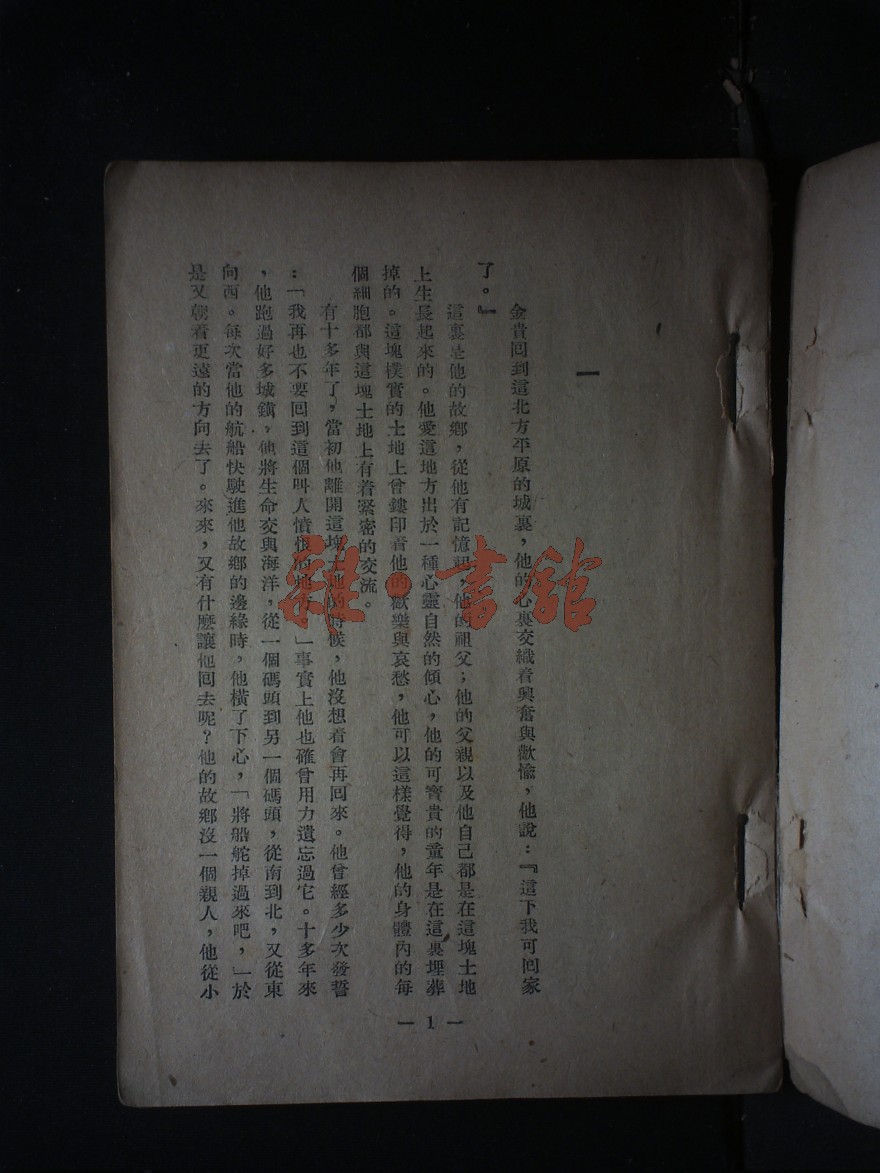 一
金貴回到這北方平原的城裏，他的心裏交織着興奮與歡愉，他說：『這下我可回家
了。』
這裏是他的故鄉，從他有記憶起，他的祖父；他的父親以及他自己都是在這塊土地
上生長起來的。他愛這地方出於一種心靈自然的傾心，他的可寶貴的童年是在這裏埋葬
掉的。這塊樸實的土地上曾鏤印着他的歡樂與哀愁，他可以這樣覺得，他的身體內的每
個細胞都與這塊土地上有着緊密的交流。
有十多年了，當初他離開這塊土地的時候，他沒想着會再回來。他曾經多少次發誓
：「我再也不要回到這個叫人憤恨的地方，」事實上他也確曾用力遺忘過它。十多年來
，他跑過好多城鎮，他將生命交與海洋，從一個碼頭到另一個碼頭，從南到北，又從東
向西。每次當他的航船快駛進他故鄉的邊緣時，他橫了下心，「將船舵掉過來吧，」於
是又朝着更遠的方向去了。來來，又有什麽讓他回去呢？他的故鄉沒一個親人，他從小
— 1 —
雜·書館